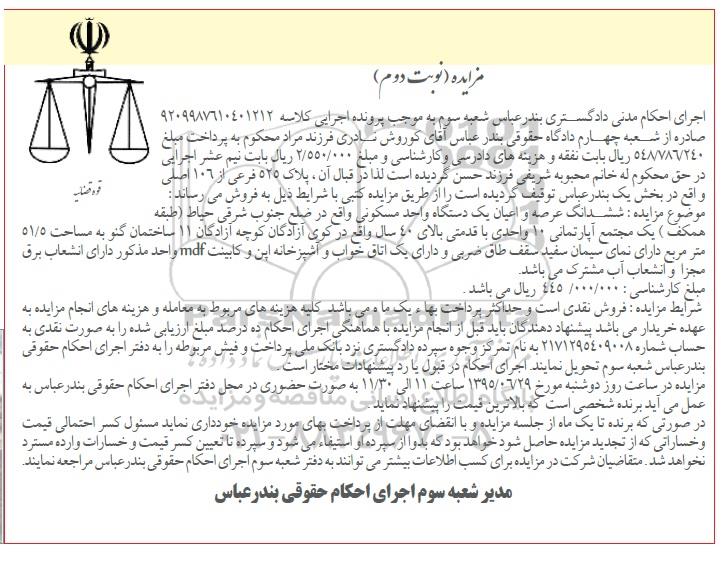 مزایده (نوبت دوم)
اجرای احکام مدنی دادگستری بندرعباس شعبه سوم به موجب پرونده اجرایی کلاسه ۹۲۰۹۹۸۷۶۱۰۴۰۱۲۱۲
صادره از شعبه چهارم دادگاه حقوقی بندر عباس آقای کوروش نادری فرزند مراد محکوم به پرداخت مبلغ
۵۴۸۷۸۶/۲۴۰ ریال بابت نفقه و هزینه های دادرسی وکارشناسی و مبلغ ۲/۵۵۰/۰۰۰ ریال بابت نیم عشر اجرایی
در حق محکوم له خانم محبوبه شریفی فرزند حسن گردیده است لذا در قبال آن ، پلاک ۵۲۵ فرعی از ۱۰۶ اصلی
واقع در بخش یک بندرعباس توقیف گردیده است را از طریق مزایده کتبی با شرایط ذیل به فروش می رساند :
موضوع مزایده : ششدانگ عرصه و اعیان یک دستگاه واحد مسکونی واقع در ضلع جنوب شرقی حیاط (طبقه
همکف ) یک مجتمع آپارتمانی ۱۰ واحدی با قدمتی بالای ۴۰ سال واقع در کوی آزادگان کوچه آزادگان ۱۱ ساختمان گنو به مساحت ۵۱/۵
متر مربع دارای نمای سیمان سفید سقف طاق ضربی و دارای یک اتاق خواب و آشپزخانه اپن و کابینت mdf واحد مذکور دارای انشعاب برق
مجزا و انشعاب آب مشترک می باشد.
مبلغ کارشناسی : ۰۰۰/۰۰۰/ ۴۴۵ ریال می باشد .
شرایط مزایده : فروش نقدی است و حداکثر پرداخت بهاء یک ماه می باشد. کلیه هزینه های مربوط به معامله و هزینه های انجام مزایده به
عهده خریدار می باشد پیشنهاد دهندگان باید قبل از انجام مزایده با هماهنگی اجرای احکام ده درصد مبلغ ارزیابی شده را به صورت نقدی به
حساب شماره ۲۱۷۱۲۹۵۴۰۹۰۰۸ به نام تمرکز وجوه سپرده دادگستری نزد بانک ملی پرداخت و فیش مربوطه را به دفتر اجرای احکام حقوقی
بندرعباس شعبه سوم تحویل نمایند. اجرای احکام در قبول یا رد پیشنهادات مختار است .
مزایده در ساعت روز دوشنبه مورخ ۱۳۹۵/۰۶/۲۹ ساعت ۱۱ الی ۱۱/۳۰ به صورت حضوری در محل دفتر اجرای احکام حقوقی بندرعباس به
عمل می آید برنده شخصی است که بالاترین قیمت را پیشنهاد نماید .
در صورتی که برنده تا یک ماه از جلسه مزایده و با انقضای مهلت از پرداخت بهای مورد مزایده خودداری نماید مسئول کسر احتمالی قیمت
وخساراتی که از تجدید مزایده حاصل شود خواهد بود که بدوا از سپرده او استیفاء می شود و سپرده تا تعیین کسر قیمت و خسارات وارده مسترد
نخواهد شد . متقاضیان شرکت در مزایده برای کسب اطلاعات بیشتر می توانند به دفتر شعبه سوم اجرای احکام حقوقی بندرعباس مراجعه نمایند.
مدیر شعبه سوم اجرای احکام حقوقی بندرعباس
قوه قضائیه